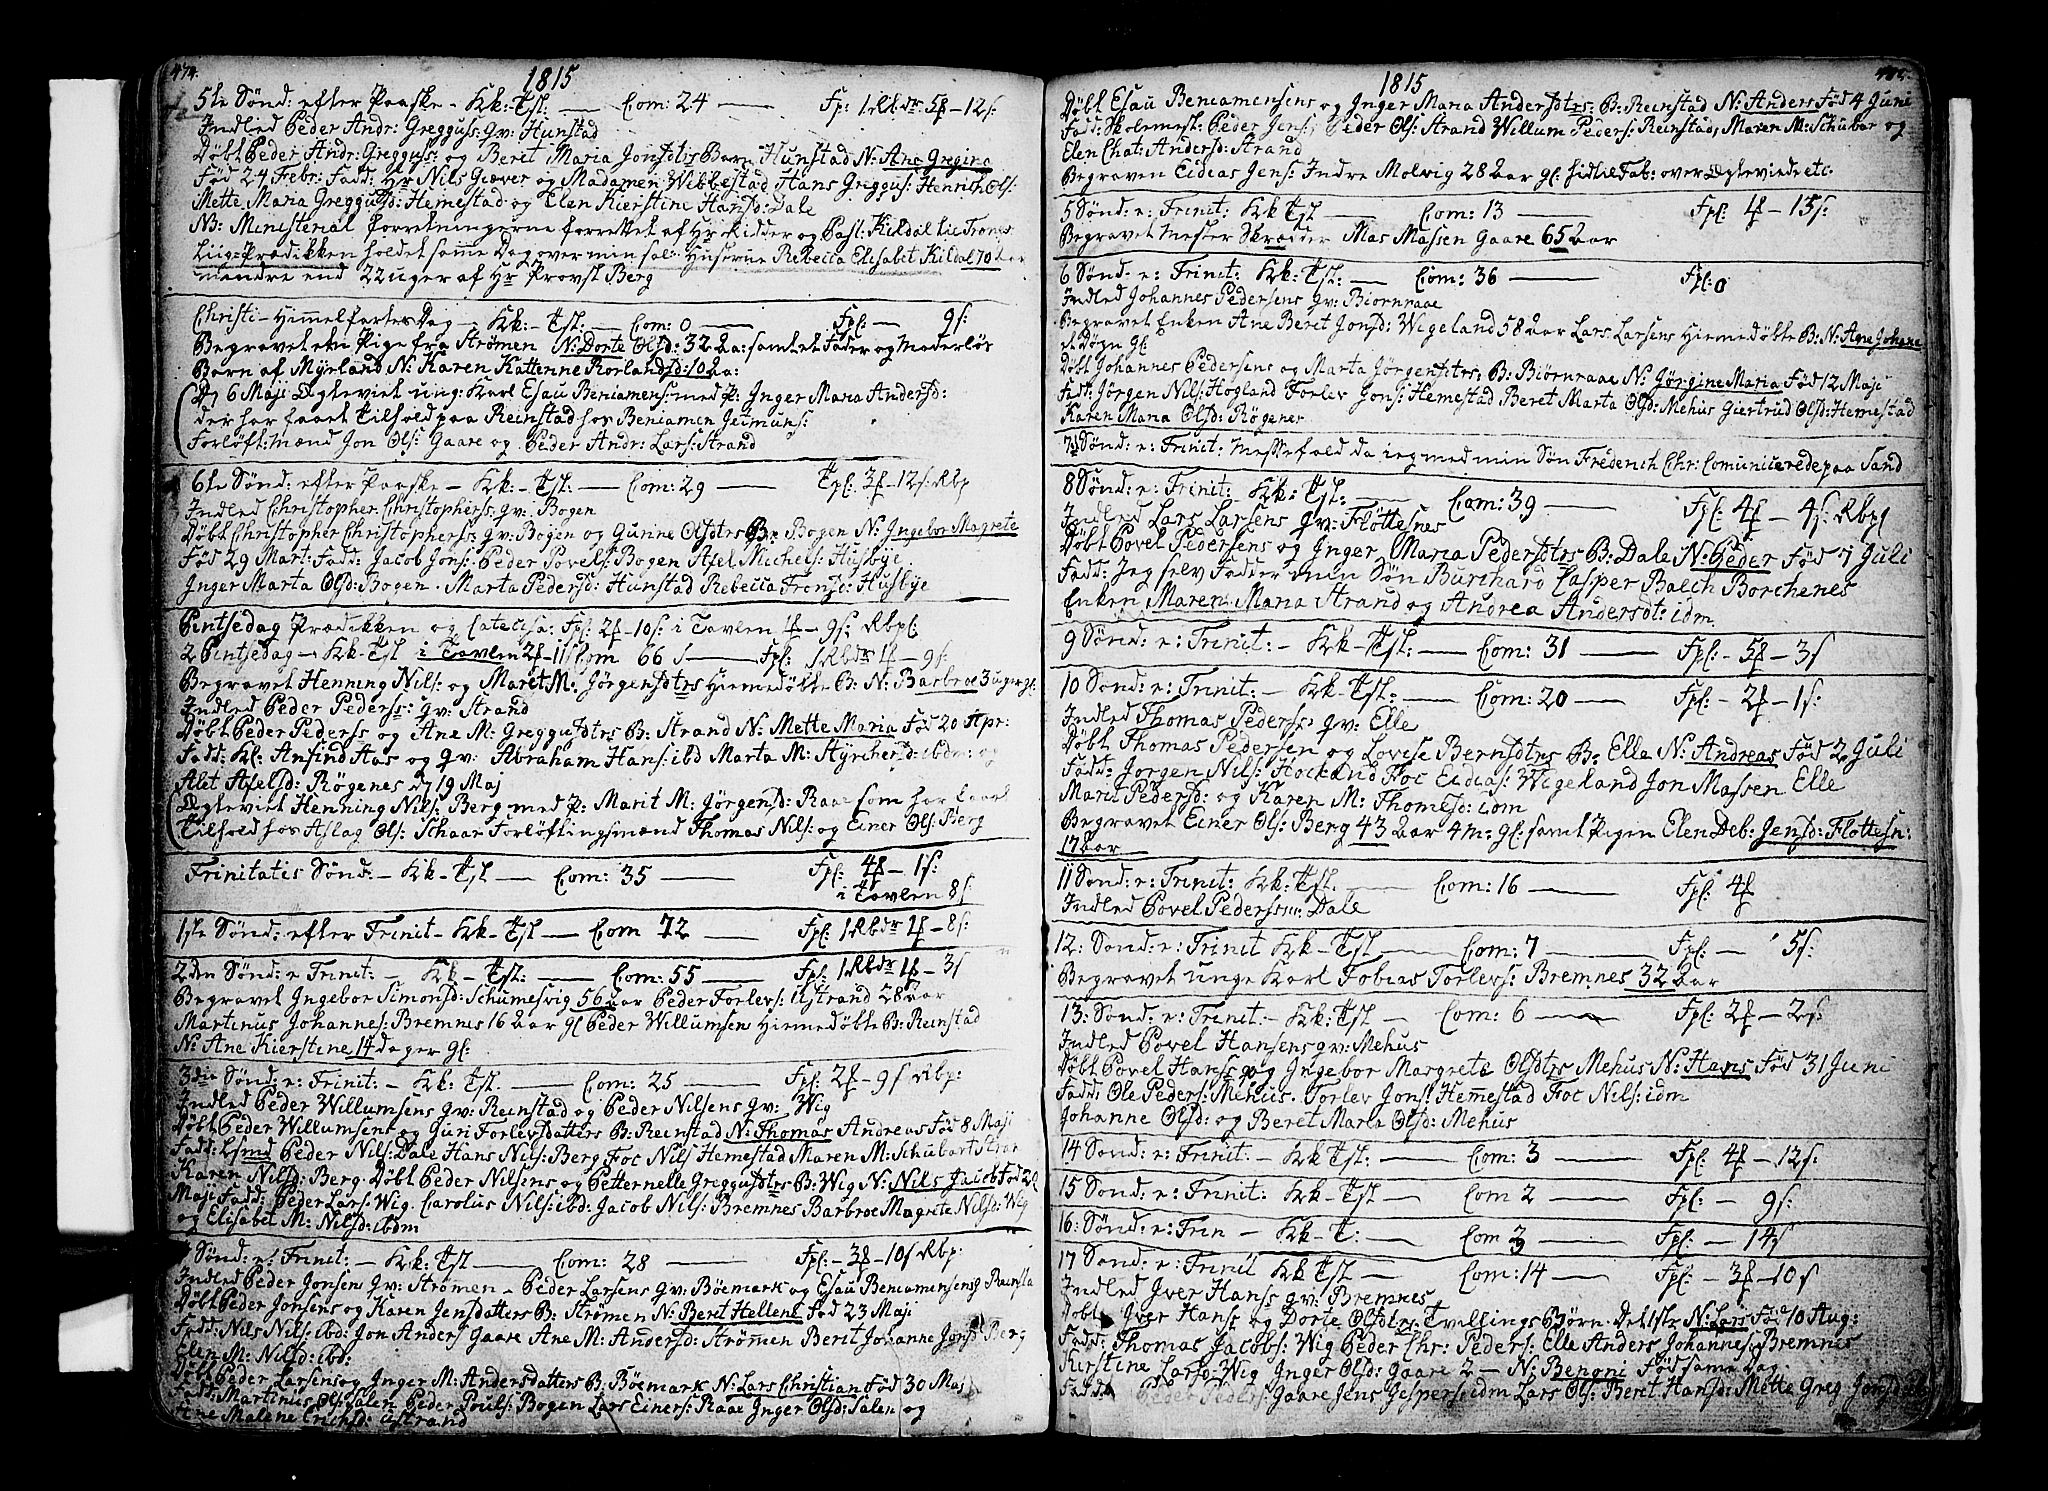 474.
1815
5te Sønd: efter Paaske - Kk: Tst: — Com: 24 — Fp: 1 Rbdr 5f - 12s:
Indled Peder Andr: Greggus: gv: Hunstad
Døbt Peder Andr: Greggus: og Berit Maria Jonsdtrs Barn Hunstad N: Ane Gregine
Fød 24 Febr: Fadd: Hr Nils Giæver og Madamen Wibbestad Hans Greggus: Henrich Ols:
Mette Maria Greggusd: Hemestad og Elen Kierstine Hansd: Dale
NB: Ministerial forretningerne forrettet af Hr Ridder og Past: Kildal
Liig-Prædikken holdet samme Dag over min sal: Hustrue Rebecca Elisabet Kildal 70 Aar
mindre end 22 uger af Hr Provst Berg
Christi-Himmelfarts Dag - Kk: - Tst: — Com: 0 — Fpl: — 9s:
Begravet en Pige fra Strømen N: Dorte Olsd: 32 Aa: samt et Fader og Moderløs
Barn af Myrland N: Karen Kattenne Rorlandsd: 10 Aa:
D. 6 Maji Ægteviet ung: Karl Esau Beniamens: med P: Inger Maria Andersd:
der har faaet Tilhold paa Reinstad hos Beniamen Jeimuns:
Forløft: mænd Jon Ols: Gaare og Peder Andr: Lars: Strand
6te Sønd: efter Paaske - Kk: - Tst: — Com: 29 — Fpl: 3f - 12s: Rbp
Indled Christopher Christophers: gv: Bogen
Døbt Christopher Christophers: gv: Bogen og Gurine Olsdtrs B: Bogen N: Ingebor Magrete
Fød 29 Mart: Fadd: Jacob Jons: Peder Povels: Bogen Axel Michels: Husbye
Inger Marta Olsd: Bogen. Marta Pedersd: Hunstad Rebecca Frensd: Husbye
Pintsedag Prædikken og Catecisa: Fpl: 2f - 10s: i Tavlen 1f - 9s: Rbpl:
2 Pintsedag - Kk: - Tst i Tavlen 2f - 11s Com 66 — Fpl: 1 Rbdr 1f - 9s:
Begravet Henning Nils: og Maret M: Jörgensdtrs Hiemedøbte B: N: Barbroe 3 uger gl:
Indled Peder Peders: gv: Strand
Døbt Peder Peders og Ane M: Greggusdtrs B: Strand N: Mette Maria Fød 20 Apr:
Fadd: Kl: Ansind Aas og gv: Abraham Hans: ibd Marta M: Styrchersd: ibdm: og
Alet Axelsd: Røgenes d 19 Maj
Ægteviet Henning Nils: Berg med P: Marit M: Jörgensd: Raae som har faaet
Tilhold hos Aslag Ols: Schaar Forløftningsmænd Thomas Nils: og Einer Ols: Berg
Trinitatis Sønd: - Kk - Tst — Com: 35 — Fpl: 4f - 1s:
i Tavlen 8s
1ste Sønd: efter Trinit - Kk - Tst — Com 72 — Fpl: 1 Rbdr 1f - 8s:
2den Sønd: e Trinit: - Kk - Tst: — Com: 55 — Fpl: 1 Rbdr 1f - 3s
Begravet Ingebor Simonsd: Schumesvig 56 Aar Peder Torlevs: Ustrand 28 Aar
Martinus Johannes: Bremnes 16 Aar gl Peder Willumsen Hiemedøbte B: Reinstad
N: Ane Kierstine 14 dager gl:
3die Sønd: e: Trinit: - Kk: Tst. — Com: 25 — Fpl: 2f - 9s Rbp:
Indled Peder Willumsens gv: Reinstad og Peder Nilsens gv: Wig
Døbt Peder Willumsens og Guri Torlevsdatters B: Reinstad N: Thomas Andreas Fød 8 Maji
Fadd: Lsmd Peder Nils: Dale Hans Nils: Berg Foc Nils Hemestad Maren M: Schubart
Karen Nilsd: Berg. Døbt Peder Nilsens og Petternelle Greggusdtrs B: Wig N: Nils Jacob Fød
Maji Fadd: Peder Lars: Wig. Carolus Nils: ibd: Jacob Nils: Bremnes Barbroe Magrete Nilsd: Wig
og Elisabet M: Nilsd: ibdm
4 Sønd: e: Trinit: - Kk: Tst — Com: 28 — Fpl: - 3f - 10s Rbp:
Indled Peder Jonsens gv: Strømen - Peder Larsens gv: Böemark og Esau Beniamensens Reinsta
Døbt Peder Jonsens og Karen Jensdatters B: Strømen N: Berit Hellene Fød 23 Maji
Fadd: Nils Nils: ibd: Jon Anders Gaare Ane M: Andersd: Strømen Berit Johanne Jonsd Berg
Elen M: Nilsd: ibd:
Døbt Peder Larsens og Inger M: Andersdatters B: Böemark N: Lars Christian Fød 30 Maj
Fadd: Martinus Ols: Salen Peder Pouls: Bogen Lars Einers: Raae Inger Olsd: Salen og
Ane Malene Erichsd: Ustrand
1815
Døbt Esau Beniamensens og Inger Maria Andersdtrs: B: Reinstad N: Anders Fød 4 Juni
Fadd: Skolemest: Peder Jens: Peder Ols: Strand Willum Peders: Reinstad, Maren M: Schubar og
Elen Chat: Andersd: Strand
Begraven Eideas Jens: Indre Molvig 28 Aar gl: over Ægteviede etc.
5 Sønd: e: Trinit: Kk - Tst — Com: 13 — Fpl: 4f - 13s:
Begravet Mester Skrædder Mas Massen Gaare 65 Aar
6 Sønd: e: Trinit: Kk - Tst: — Com: 36 — Fpl: 0
Indled Johannes Pedersens gv: Biornraae
Begravet Enken Ane Beret Jonsd: Wigeland 58 Aar Lars Larsens Hiemedøbte B: N: Ane Johane
et Døgn gl:
Døbt Johannes Pedersens og Marta Jörgensdtrs: B: Biørnraae N: Jörgine Maria Fød 12 Maji
Fadd: Jörgen Nils: Hogland Torlev Jons: Hemestad Beret Marta Olsd: Mehus Giertrud Olsd: Hemestad
Karen Maria Olsd: Røgenes
7d Sønd: e: Trinit: Messefald da ieg med min Søn Frederich Chr: Comunicerede paa Sand
8 Sønd: e: Trinit: Kk: Tst: — Com: 39 — Fpl: 4f - 4s: Rbpl
Indled Lars Larsens gv: Fløttesnes
Døbt Povel Pedersens og Inger Maria Pedersdtrs B: Dale N: Peder Fød 7 Juli
Fadd: Jeg selv Fadder min Søn Burchard Casper Balch Borchenes
Enken Maren Maria Strand og Andrea Andersdt: idm
9 Sønd: e: Trinit - Kk - Tst: — Com: 31 — Fpl: - 5f - 3s
10 Sønd: e: Trinit: - Kk - Tst: — Com: 20 — Fpl: - 2f - 1s:
Indled Thomas Peders: gv: Elle
Døbt Thomas Pedersen og Lovise Berndtrs B: Elle N: Andreas Fød 2 Juli
Fadd: Jörgen Nils: Hockland Foc Eideas: Wigeland Jon Massen Elle
Marit Pedersd: og Karen M: Thomesd: idm
Begravet Einer Ols: Berg 43 Aar 4 m: gl: samt Pigen Elen Deb: Jensd: Fløttesn:
17 Aar
11 Sønd: e: Trinit: Kk: Tst. — Com: 16 — Fpl: 4f
Indled Povel Peders: Dale
12: Sønd: e: Trinit Kk - Tst — Com: 7 — Fpl: — 5s:
Begravet unge Karl Tobias Torlevs: Bremnes 32 Aar
13: Sønd: e: Trinit - Kk: Tst — Com: 6 — Fpl: 2f - 2s:
Indled Povel Hansens gv: Mehus
Døbt Povel Hans: og Ingebor Margrete Olsdtrs Mehus N: Hans Fød 31 Juni
Fadd: Ole Peders: Mehus. Torlev Jons: Hemestad Foc Nils: idm
Johanne Olsd: og Beret Marta Olsd: Mehus
14 Sønd: e: Trinit: - Kk Tst: — Com: 3 — Fpl: 4f - 12s:
15 Sønd: e: Trinit: Kk - Tst — Com 2 — Fpl: — 9s:
16: Sønd: e: Trin - Kk - T: — Com 3 — Fpl: - 14s
17 Sønd: e: Trinit Kk Tst — Com: 14 — Fpl: - 3f - 10s
Indled Iver Hans gv: Bremnes
Døbt Iver Hans og Dorte Olsdtrs Tvillings Børn. Det 1ste N: Lars Fød 10 Aug:
Fadd: Thomas Jacobs: Wig Peder Chr: Peders: Elle Anders Johannes: Bremnes
Kirstine Larsd: Wig Inger Olsd: Gaare 2 - N: Bengni Fød sama Dag
Fadd: Peder Peders: Gaare Jens Jespers: idm Lars Ols: Beret Hansd: Mette Greg: Jonsd